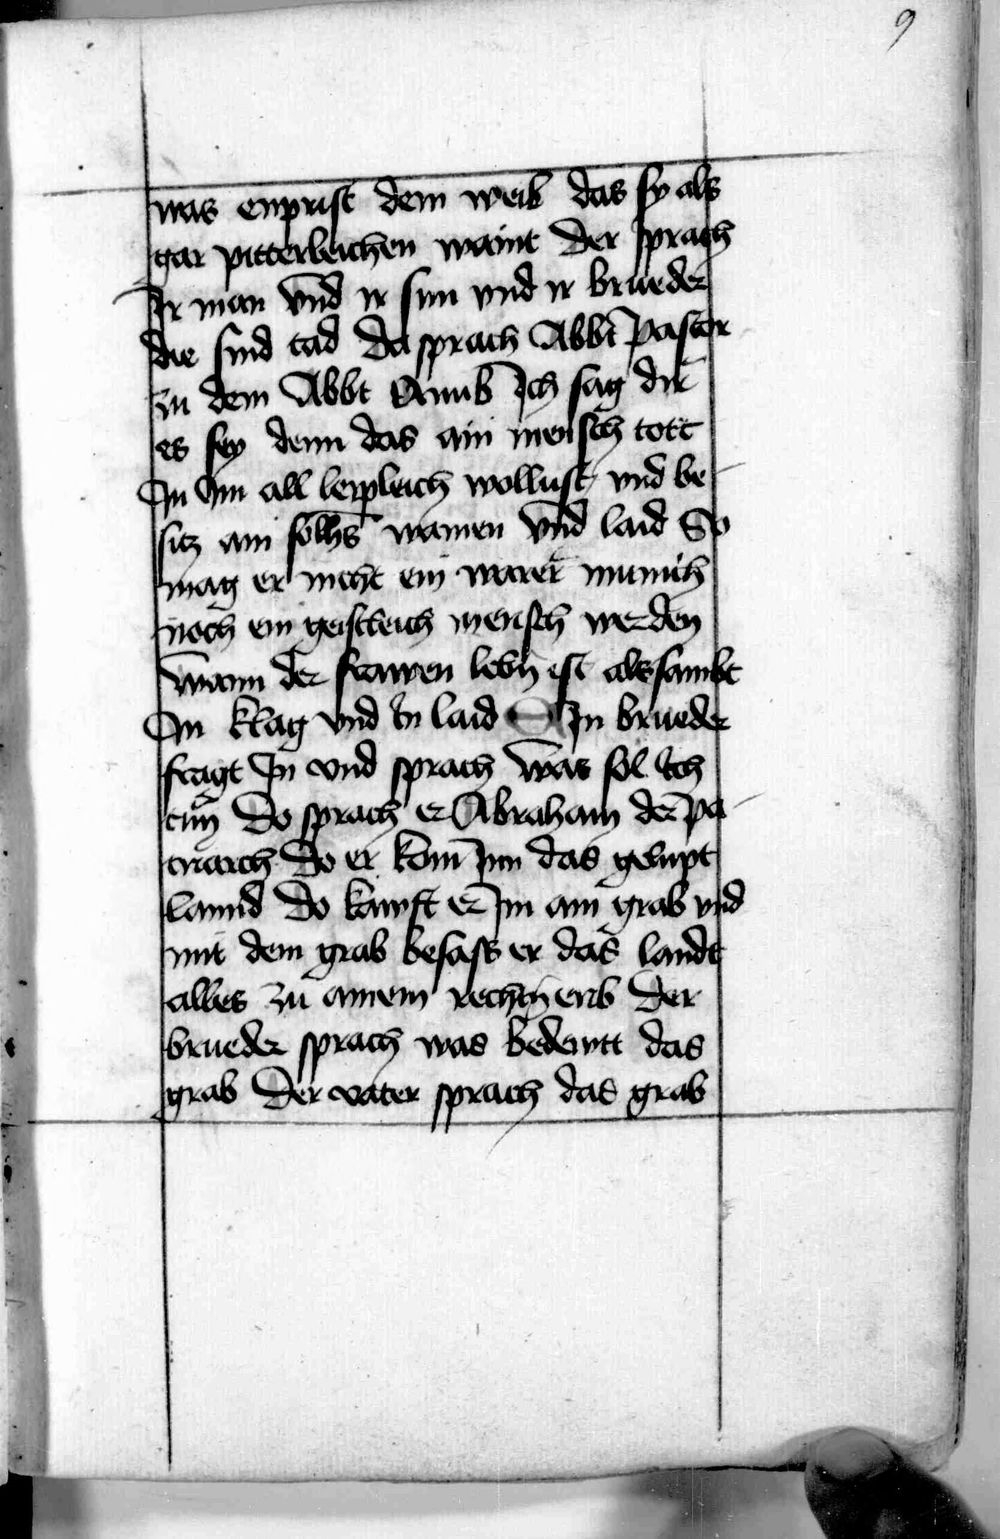 9
was enprist dem weib das sy als
gar pitterleichen waint Der sprach
Ir man vnd ir sun vnd ir brueder
die sind tad Da sprach Abbt Pastor
zu dem Abbt Anub Ich sag dir
es sey denn das ain mensch tott
In Im all leipleich wollust vnd be
sitz ain solhs wainen vnd laid So
mag er nicht ein warer munich
noch ein geistleich mensch werden
wann der frawen lebn ist alssambt
In klag vnd In laid Ein brueder
fragt In vnd sprach was sol Ich
tun Do sprach er Abraham der pa
triarch Do er kom Inn das gelupt
lannd Do kawft er Im ain grab vnd
mit dem grab besass er das landt
alles zu ainem rechtn erib Der
brueder sprach was bedewtt das
grab Der vater sprach das grab